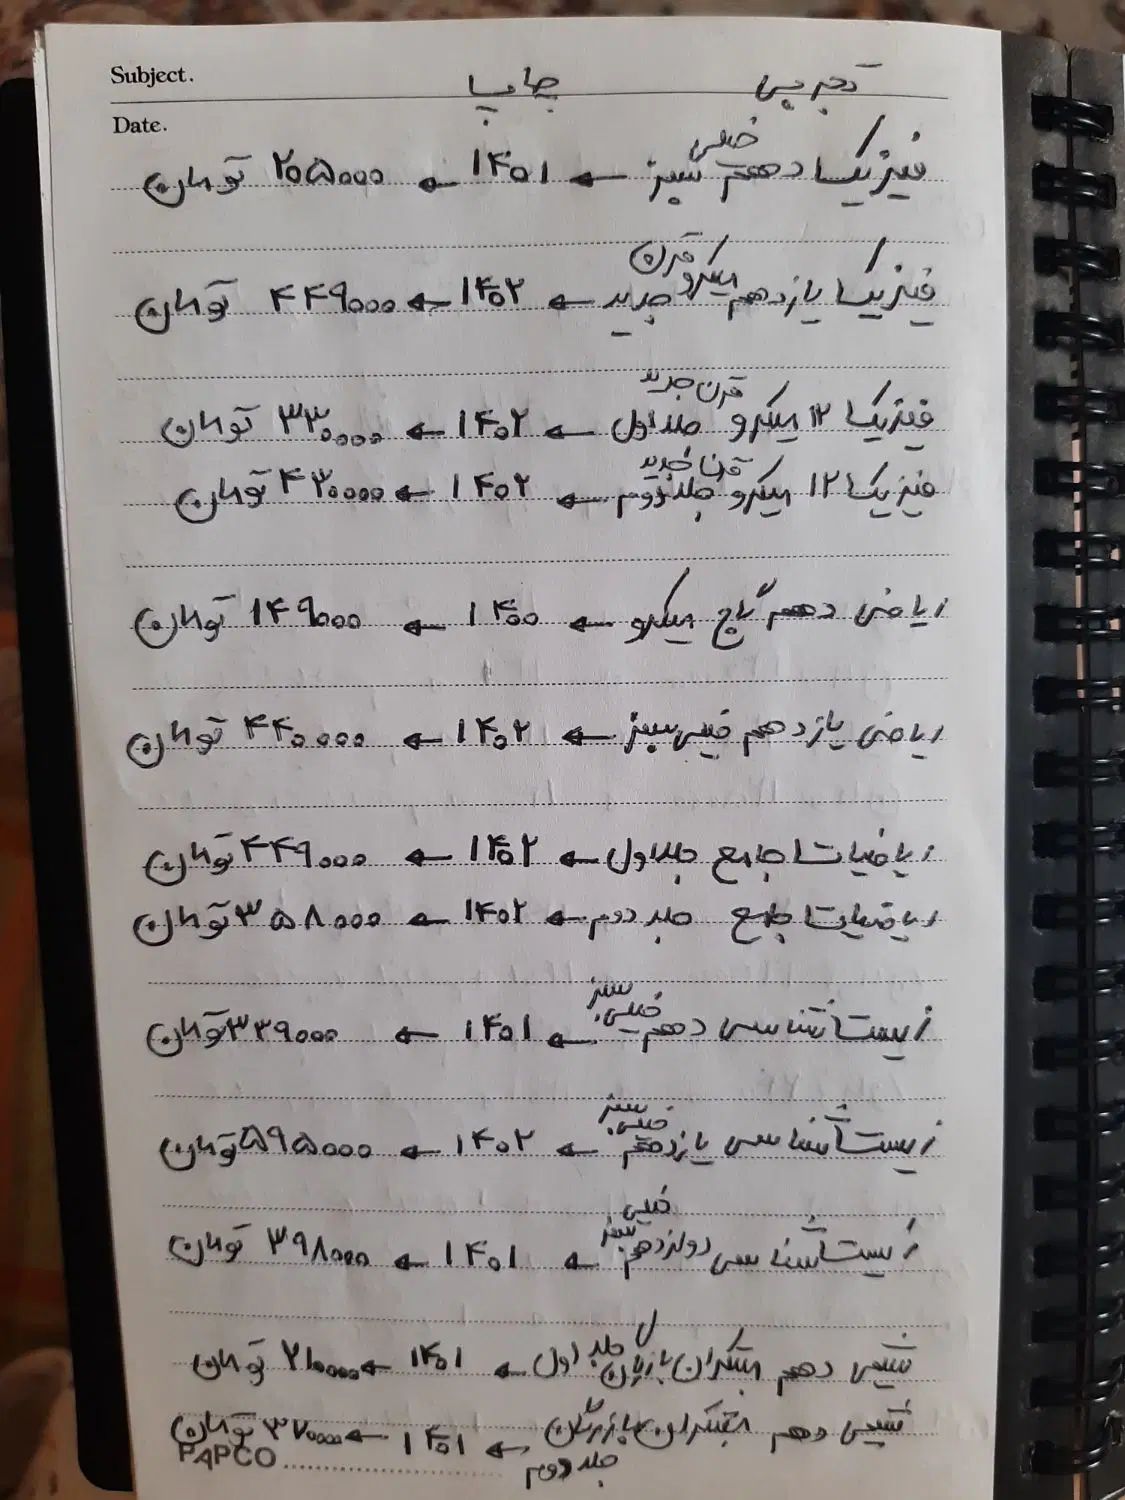 Subject. چاپ تجربی
Date.
فیزیک دهم خیلی سبز ← ۱۴۰۱ ← ۲۰۵۰۰۰ تومان
فیزیک یازدهم میکرو قرن جدید ← ۱۴۰۲ ← ۴۴۹۰۰۰ تومان
فیزیک ۱۲ میکرو قرن جدید جلد اول ← ۱۴۰۲ ← ۳۳۰۰۰۰ تومان
فیزیک ۱۲ میکرو قرن جدید جلد دوم ← ۱۴۰۲ ← ۴۳۰۰۰۰ تومان
ریاضی دهم گاج میکرو ← ۱۴۰۰ ← ۱۴۹۰۰۰ تومان
ریاضی یازدهم خیلی سبز ← ۱۴۰۲ ← ۴۴۰۰۰۰ تومان
ریاضیات جامع جلد اول ← ۱۴۰۲ ← ۴۴۹۰۰۰ تومان
ریاضیات جامع جلد دوم ← ۱۴۰۲ ← ۳۵۸۰۰۰ تومان
زیست شناسی دهم خیلی سبز ← ۱۴۰۱ ← ۳۳۹۰۰۰ تومان
زیست شناسی یازدهم خیلی سبز ← ۱۴۰۲ ← ۵۹۵۰۰۰ تومان
زیست شناسی دوازدهم خیلی سبز ← ۱۴۰۱ ← ۳۹۸۰۰۰ تومان
شیمی دهم مبتکران جلد اول ← ۱۴۰۱ ← ۲۱۰۰۰۰ تومان
شیمی دهم مبتکران جلد دوم ← ۱۴۰۱ ← ۳۷۰۰۰۰ تومان
PAPCO